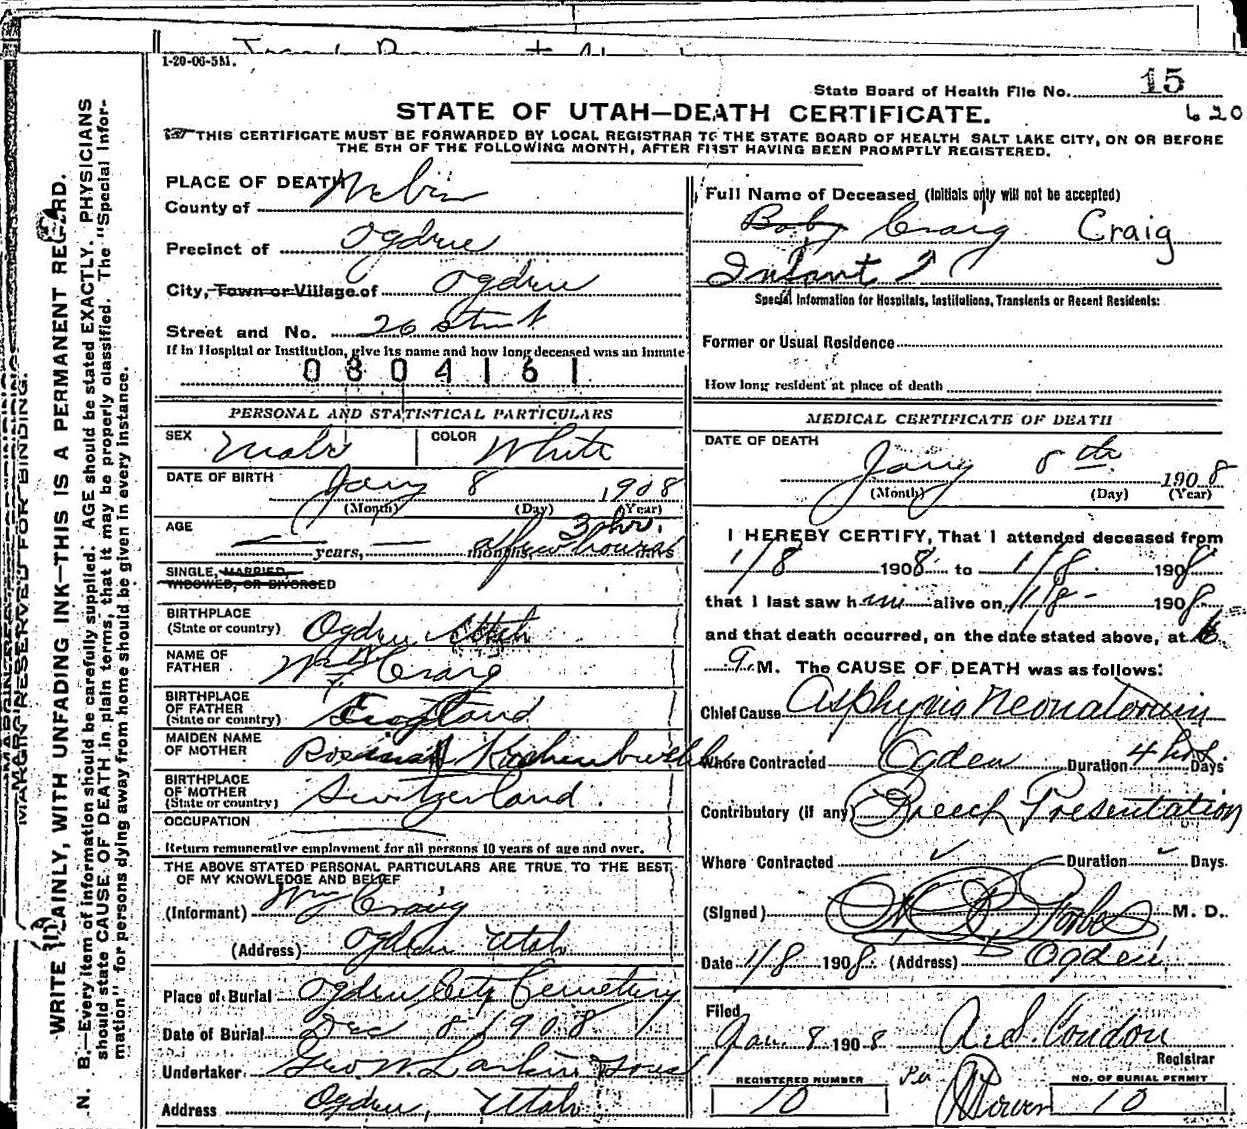 1-20-06-5M.
State Board of Health File No. 15
STATE OF UTAH—DEATH CERTIFICATE.
620
THIS CERTIFICATE MUST BE FORWARDED BY LOCAL REGISTRAR TO THE STATE BOARD OF HEALTH SALT LAKE CITY, ON OR BEFORE
THE 5TH OF THE FOLLOWING MONTH, AFTER FIRST HAVING BEEN PROMPTLY REGISTERED.
MARGIN RESERVED FOR BINDING.
WRITE PLAINLY, WITH UNFADING INK—THIS IS A PERMANENT RECORD.
N. B.—Every item of information should be carefully supplied. AGE should be stated EXACTLY. PHYSICIANS
should state CAUSE OF DEATH in plain terms, that it may be properly classified. The "Special Infor-
mation" for persons dying away from home should be given in every instance.
PLACE OF DEATH
County of Weber
Precinct of Ogden
City, Town or Village of Ogden
Street and No. 26 street
If in Hospital or Institution, give its name and how long deceased was an inmate
0804161
PERSONAL AND STATISTICAL PARTICULARS
SEX Male COLOR White
DATE OF BIRTH Jany 8 1908
(Month) (Day) (Year)
AGE — years, — months 3 hr.
a few hours
SINGLE, MARRIED,
WIDOWED, OR DIVORCED
BIRTHPLACE
(State or country) Ogden Utah
NAME OF
FATHER Wm Craig
BIRTHPLACE
OF FATHER
(State or country) England
MAIDEN NAME
OF MOTHER Rosina
BIRTHPLACE
OF MOTHER
(State or country) Switzerland.
OCCUPATION
Return remunerative employment for all persons 10 years of age and over.
THE ABOVE STATED PERSONAL PARTICULARS ARE TRUE TO THE BEST
OF MY KNOWLEDGE AND BELIEF
(Informant) Wm Craig
(Address) Ogden Utah
Place of Burial Ogden City Cemetery
Date of Burial Dec 8 1908
Undertaker Geo W. Larkin & Sons
Address Ogden, Utah
Full Name of Deceased (Initials only will not be accepted)
Baby Craig Craig
Infant
Special Information for Hospitals, Institutions, Transients or Recent Residents:
Former or Usual Residence
How long resident at place of death
MEDICAL CERTIFICATE OF DEATH
DATE OF DEATH
Jany 8th 1908
(Month) (Day) (Year)
I HEREBY CERTIFY, That I attended deceased from
1/8 1908 to 1/8 1908
that I last saw him alive on 1/8 1908,
and that death occurred, on the date stated above, at 6
a M. The CAUSE OF DEATH was as follows:
Chief Cause Asphyxia Neonatorum
Where Contracted Ogden Duration 4 hrs. Days.
Contributory (if any) Breech Presentation
Where Contracted Duration Days.
(Signed) Forbes M. D.
Date 1/8 1908. (Address) Ogden
Filed
Jan. 8 1908 A. S. Condon
Registrar
REGISTERED NUMBER
10
Per
NO. OF BURIAL PERMIT
10